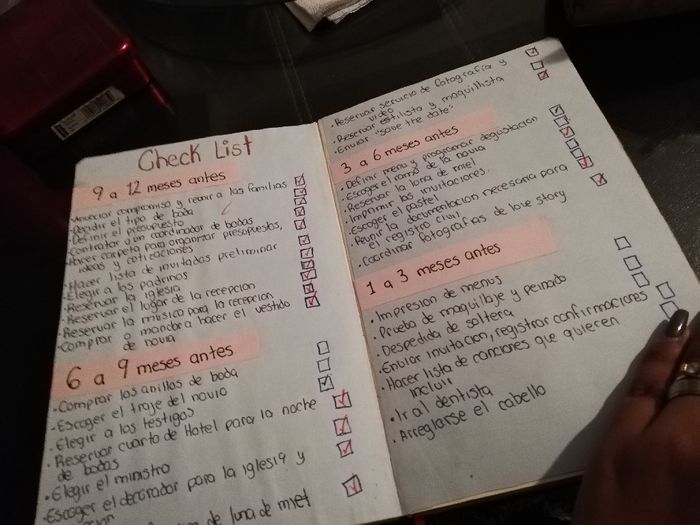 Check List
9 a 12 meses antes
Anunciar compromiso y reunir a las familias
Decidir el tipo de boda
Definir el presupuesto
Contratar a un coordinador de bodas
Hacer carpeta para organizar presupuestos,
ideas y cotizaciones
Hacer lista de invitados preliminar
Elegir a los padrinos
• Reservar la iglesia
• Reservar el lugar de la recepcion
• Reservar la musica para la recepcion
• Comprar o mandara hacer el vestido
de novia
6 a 9 meses antes
• Comprar los anillos de boda
• Escoger el traje del novio
• Elegir a los testigos
• Reservar cuarto de Hotel para la noche
de bodas
• Elegir el ministro
• Escoger el decorador para la iglesia y
de luna de miel
• Reservar servicio de fotografia y
video
• Reservar estilista y maquillista
• Enviar "save the date"
3 a 6 meses antes
• Definir menu y programar degustacion
• Escoger el ramo de la novia
• Reservar la luna de miel
• Imprimir las invitaciones.
• Escoger el pastel
• Reunir la documentacion necesaria para
el registro civil
• Coordinar fotografias de love story
1 a 3 meses antes
• Impresion de menus
• Prueba de maquillaje y peinado
• Despedida de soltera
• Enviar invitacion, registrar confirmaciones
• Hacer lista de canciones que quieren
incluir
• Ir al dentista
• Arreglarse el cabello